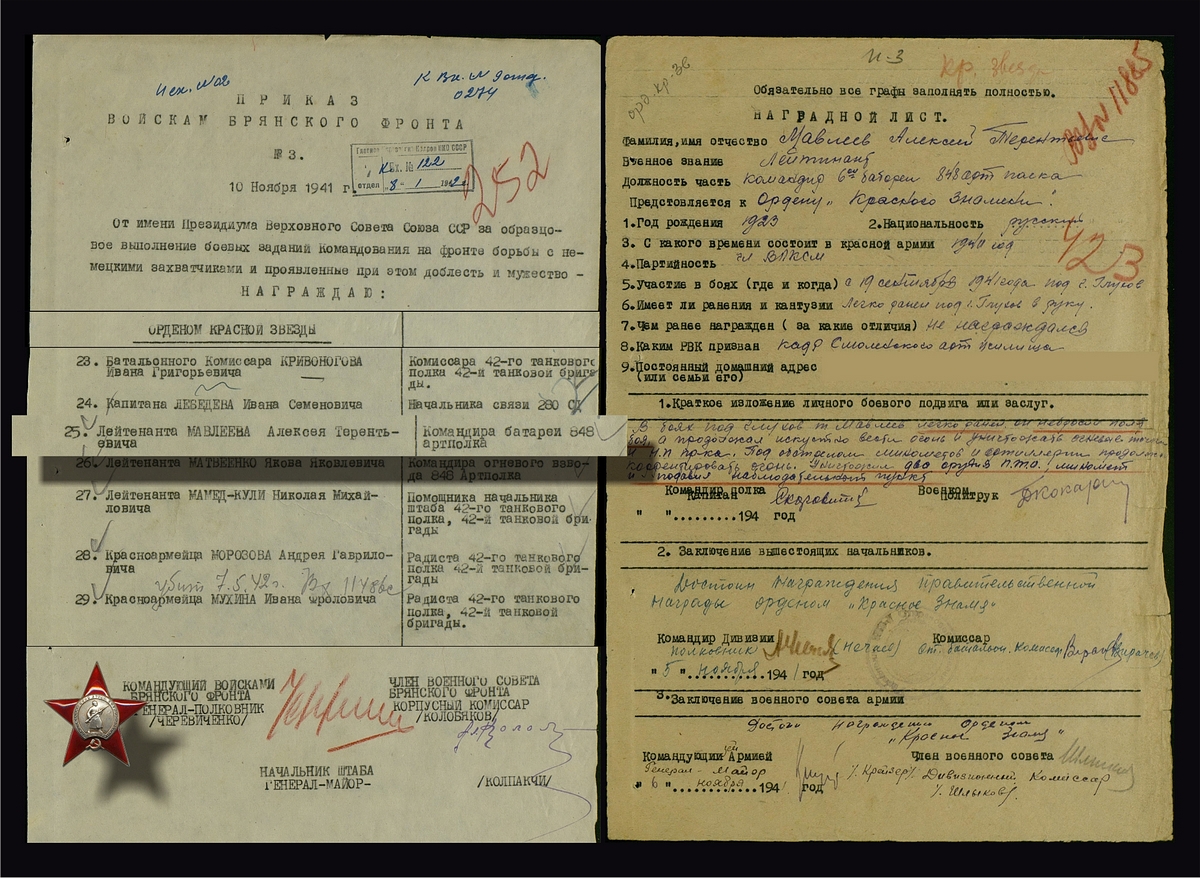 Исх. №02
К Вх. №
0274
ПРИКАЗ
ВОЙСКАМ БРЯНСКОГО ФРОНТА
№ 3.
Вх. № 122
отдел "8-1 1942
252
10 Ноября 1941 г.
От имени Президиума Верховного Совета Союза ССР за образцо-
вое выполнение боевых заданий Командования на фронте борьбы с не-
мецкими захватчиками и проявленные при этом доблесть и мужество -
НАГРАЖДАЮ:
ОРДЕНОМ КРАСНОЙ ЗВЕЗДЫ
23. Батальонного Комиссара КРИВОНОГОВА
Ивана Григорьевича
Комиссара 42-го танкового
полка 42-й танковой брига-
ды.
24. Капитана ЛЕБЕДЕВА Ивана Семеновича
Начальника связи 280 СД
25. Лейтенанта МАВЛЕЕВА Алексея Теренть-
евича
Командира батареи 848
артполка
26. Лейтенанта МАТВЕЕНКО Якова Яковлевича
Командира огневого взво-
да 848 Артполка
27. Лейтенанта МАМЕД-КУЛИ Николая Михай-
ловича
Помощника начальника
штаба 42-го танкового
полка, 42-й танковой бри-
гады
28. Красноармейца МОРОЗОВА Андрея Гаврило-
вича
Радиста 42-го танкового
полка 42-й танковой бри-
гады
убит 7.5.42г. Вх 1148вс
29. Красноармейца МУХИНА Ивана Фроловича
Радиста 42-го танкового
полка, 42-й танковой
бригады.
КОМАНДУЮЩИЙ ВОЙСКАМИ
БРЯНСКОГО ФРОНТА
ГЕНЕРАЛ-ПОЛКОВНИК
/ЧЕРЕВИЧЕНКО/
ЧЛЕН ВОЕННОГО СОВЕТА
БРЯНСКОГО ФРОНТА
КОРПУСНЫЙ КОМИССАР
/КОЛОБЯКОВ/
НАЧАЛЬНИК ШТАБА
ГЕНЕРАЛ-МАЙОР-
/КОЛПАКЧИ/
И-3
Кр. звезда
орд. кр. зв
11885
Обязательно все графы заполнять полностью.
НАГРАДНОЙ ЛИСТ.
Фамилия,имя отчество Мавлеев Алексей Терентьевис
Военное звание Лейтинант
Должность часть командир 6ой батареи 848 арт полка
Представляется к Ордену „Красного Знамени".
1.Год рождения 1923 2.Национальность русский
3. С какого времени состоит в красной армии 1940 год
423
4.Партийность чл ВЛКСМ
5.Участие в боях (где и когда) с 19 сентября 1941года под г. Глухов
6.Имеет ли ранения и кантузии Легко ранен под г. Глухов в руку.
7.Чем ранее награжден ( за какие отличия) не награждался
8.Каким РВК призван кадр Смоленского арт училища
9.Постоянный домашний адрес
(или семьи его)
1.Краткое изложение личного боевого подвига или заслуг.
В боях под Глухов т Мавлеев легко ранен, он небросил поля
боя, а продолжал искустью вести огонь и уничтожать огневые точки
и Н.П пр-ка. Под обстрелом минометов и артиллерии продолжал
корректировать огонь. Уничтожил два орудия П.Т.О., миномет
и подавил наблюдательный пункт
Командир полка
Капитан
Военком
Политрук
" "..........194 год
2. Заключение вышестоящих начальников.
Достоин награждения правительственной
награды орденом „Красное Знамя"
Командир Дивизии
полковник (Нечаев)
Комиссар
ст. батальон. комиссар
" 5 " ноября 1941 год
3.Заключение военного совета армии
Достоин награждения Орденом
„Красное Знамя"
Командующий Армией
Генерал-Майор /Крейзер/
" 6 " ноября 1941 год
Член военного совета
Дивизионный Комиссар
/Шлыков/.